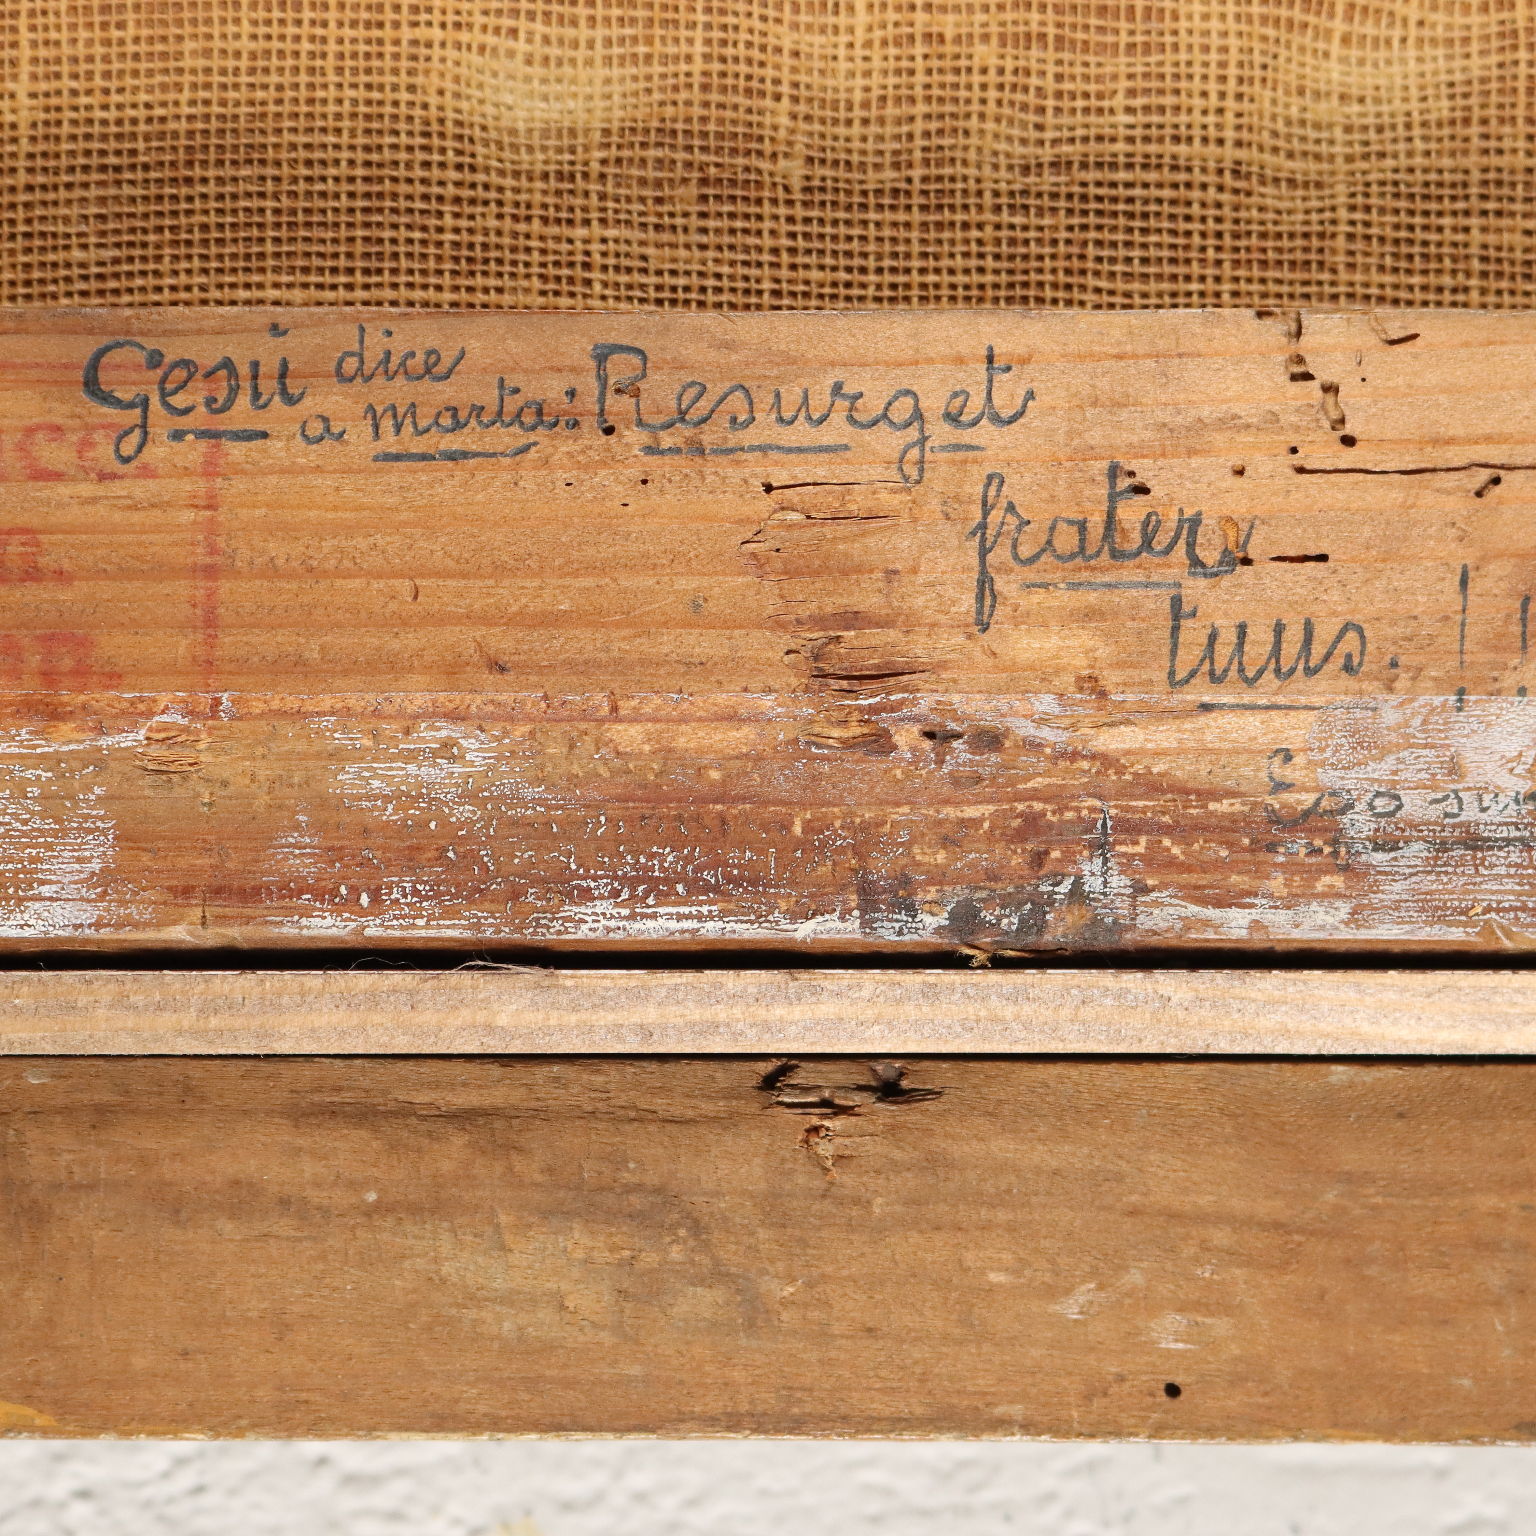 Gesù dice
a Marta: Resurget
frater
tuus. ! !
Ego sum